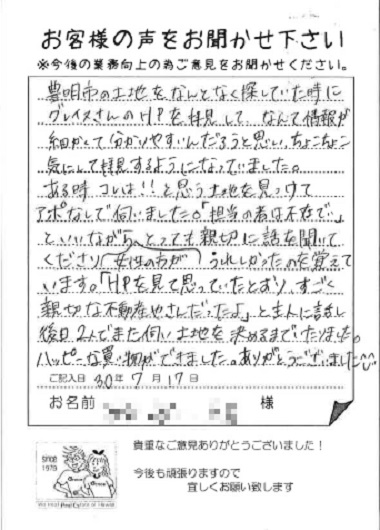 お客様の声をお聞かせ下さい
※今後の業務向上の為ご意見をお聞かせください。
豊明市の土地をなんとなく探していた時に
グレイスさんのHPを拝見して なんて情報が
細かくて分かりやすいんだろうと思い、ちょこちょこ
気にして拝見するようになっていました。
ある時 コレは!!と思う土地を見つけて
アポなしで伺いました。「担当の者は不在で」
といいながら、とっても親切に話を聞いて
くださり(女性の方が)うれしかったのを覚えて
います。「HPを見て思っていたとおり、すごく
親切な不動産やさんだったよ」と主人に話し
後日2人でまた伺い土地を決めるまで
ハッピーな買い物ができました。ありがとうございました
ご記入日 30年 7月 17日
お名前 様
since
貴重なご意見ありがとうございました！
今後も頑張りますので
宜しくお願い致します